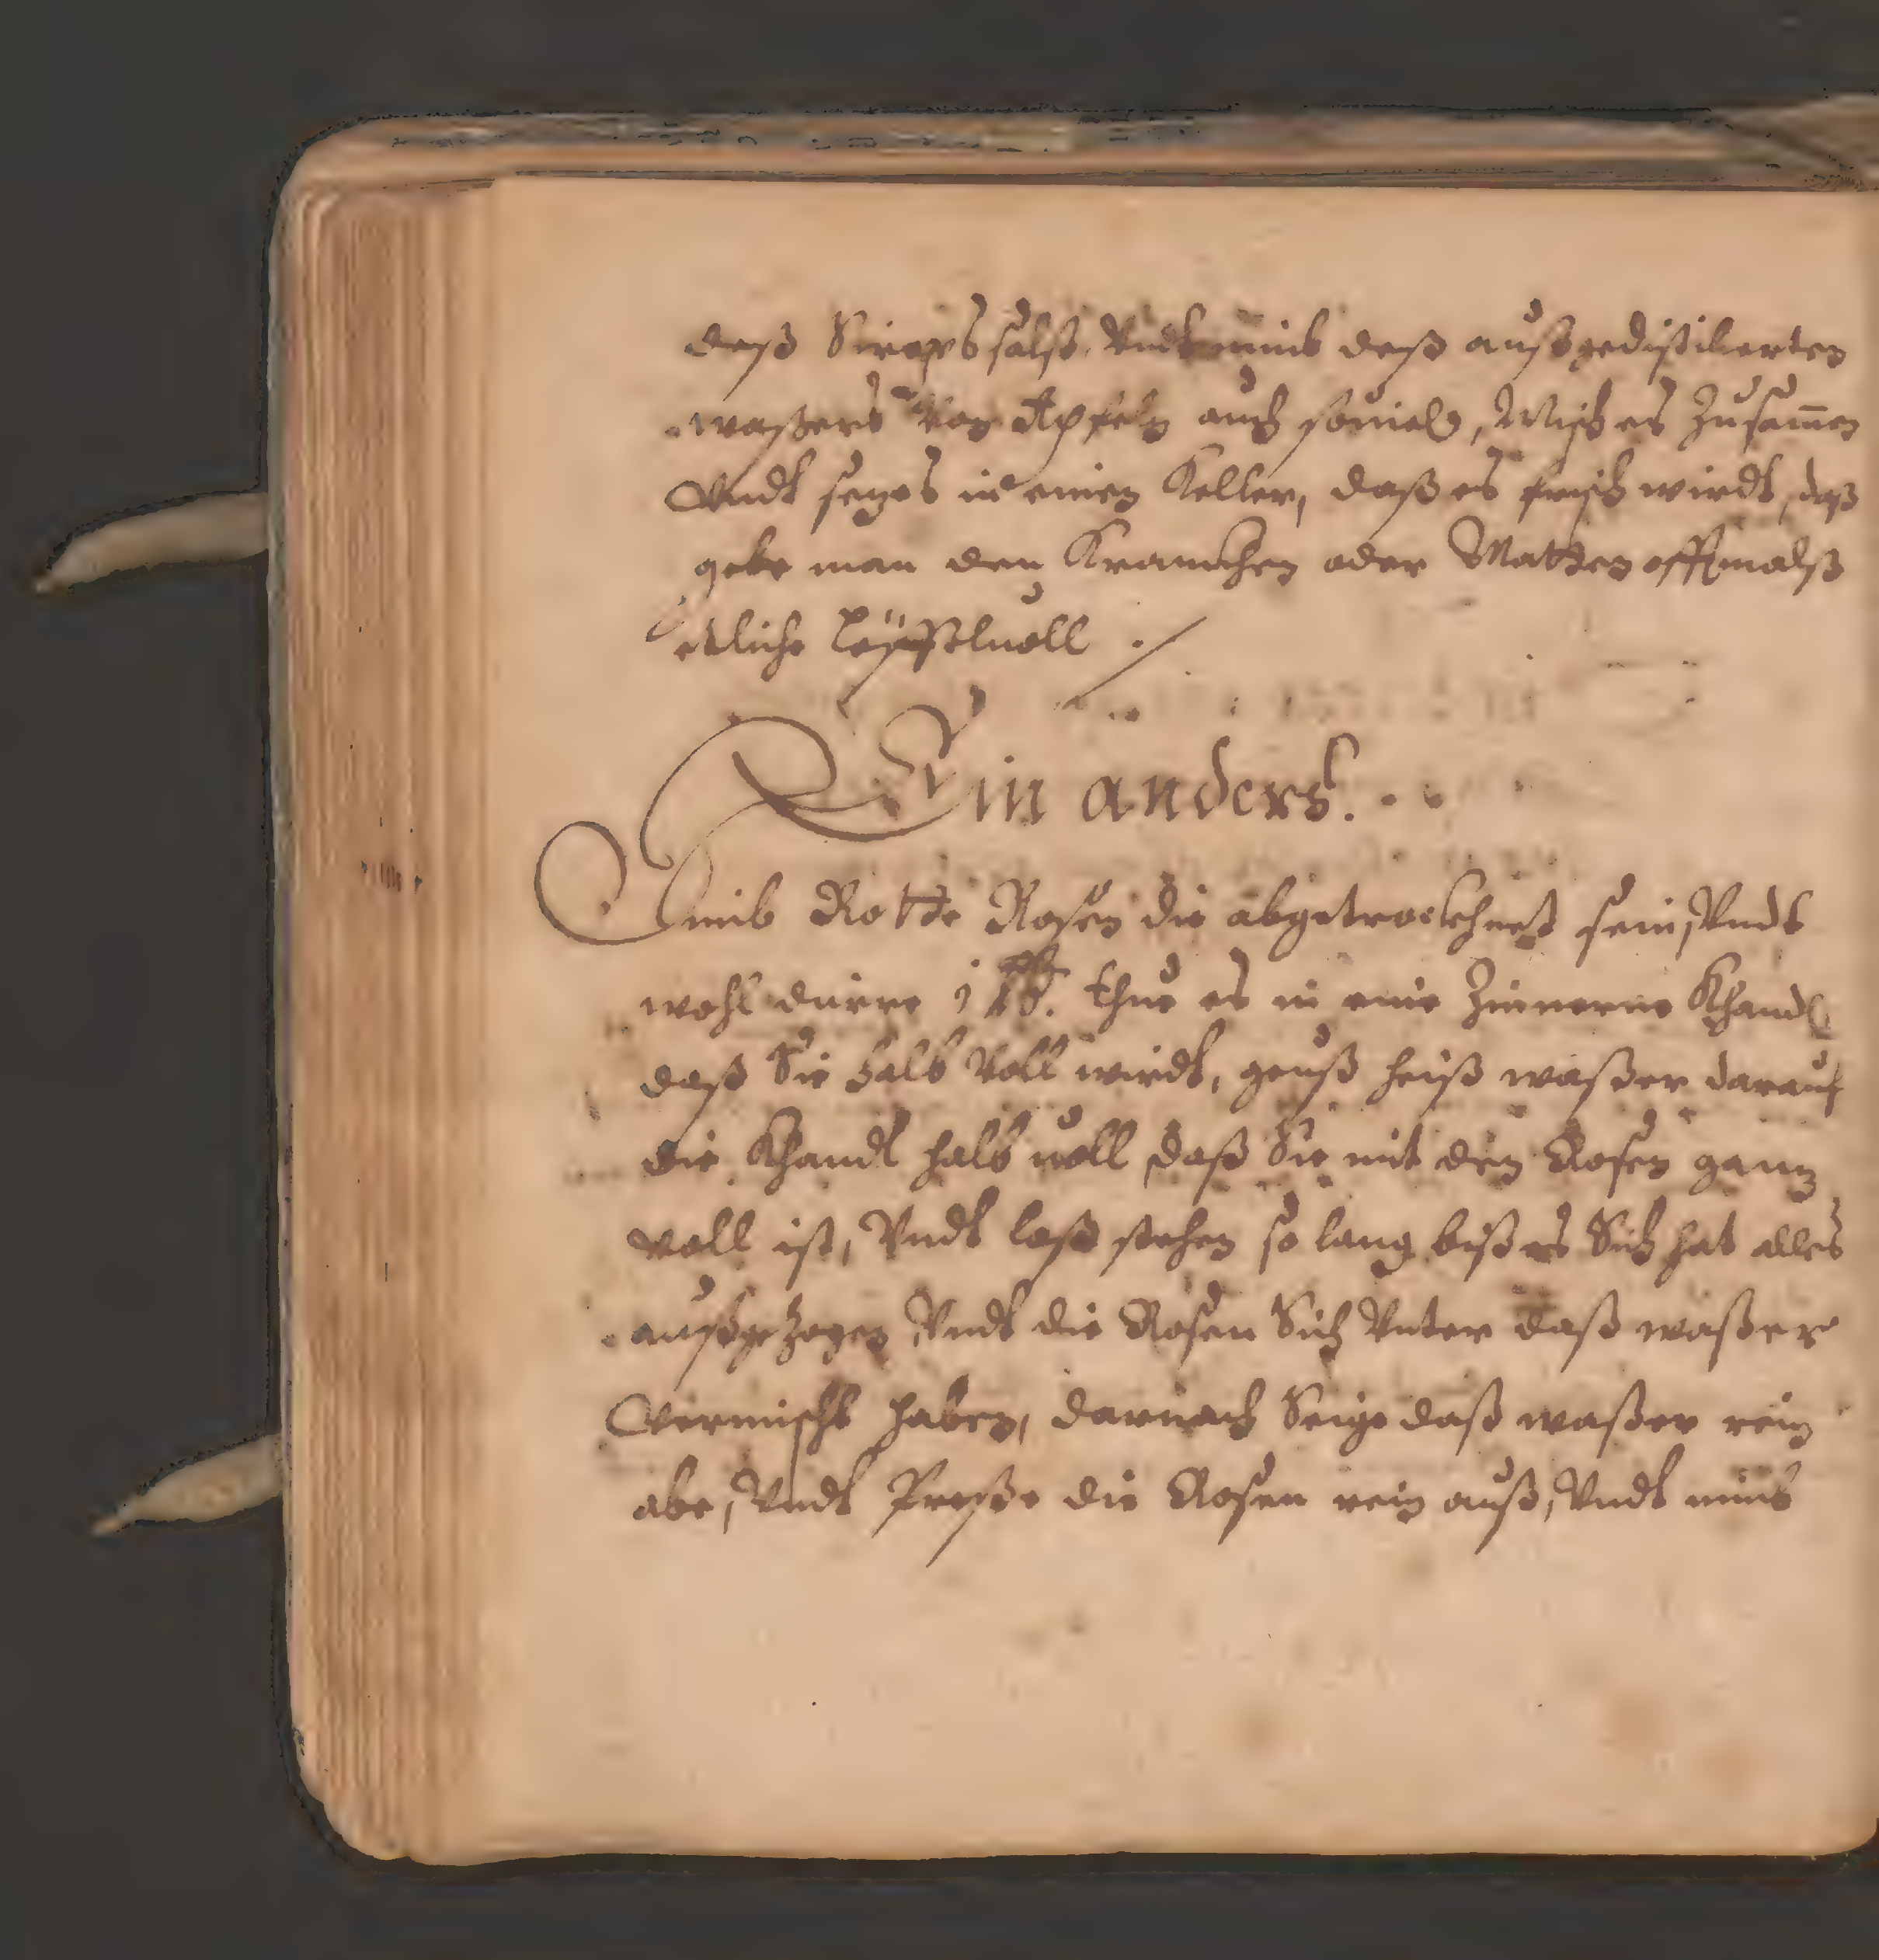 deß Siropssalß, Vndt nimb deß außgedistilierten
waßers Von Äpfeln auch souiel, Misch es Zusam̄en
Vndt setzes in einen Keller, daß es frisch wirdt, daß
gebe man den Krancken oder Matten offtmalß
etliche Löffeluoll ./
Ein anders.
Nimb Rotte Rosen die abgetrocknet sein, Vndt
wohl dürre 1 ℔. thue es in eine Zinnerne Khandl
daß Sie halb Voll wirdt, geuß heiß waßer darauf
die Khandl halb uoll, daß Sie mit den Rosen gantz
voll ist, Vndt laß stehen so lang biß es Sich hat alles
außgezogen, Vndt die Rosen Sich Vnter daß waßer
Vermischt haben, darnach Seige daß waßer rein
abe, Vndt Preße die Rosen rein auß, Vndt nimb